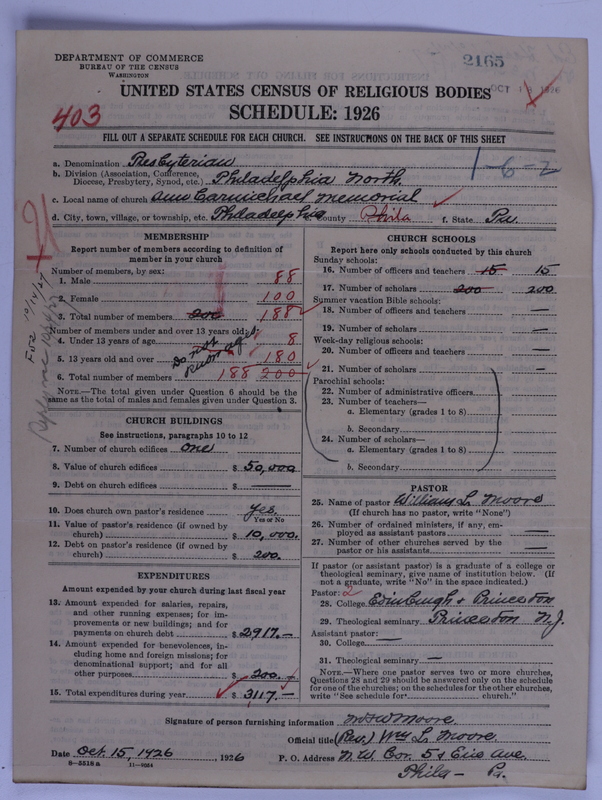 DEPARTMENT OF COMMERCE
BUREAU OF THE CENSUS
WASHINGTON
2165
OCT 18 1926
UNITED STATES CENSUS OF RELIGIOUS BODIES
SCHEDULE: 1926
403
FILL OUT A SEPARATE SCHEDULE FOR EACH CHURCH. SEE INSTRUCTIONS ON THE BACK OF THIS SHEET
a. Denomination Presbyterian
1-6-2
b. Division (Association, Conference, Diocese, Presbytery, Synod, etc.) Philadelphia North.
c. Local name of church Ann Carmichael Memorial
d. City, town, village, or township, etc. Philadelphia County Phila f. State Pa.
MEMBERSHIP
Report number of members according to definition of
member in your church
Number of members, by sex:
1. Male 88
2. Female 100
3. Total number of members 200 188
Number of members under and over 13 years old:
4. Under 13 years of age 8
5. 13 years old and over 180
6. Total number of members 188 200
NOTE.—The total given under Question 6 should be the
same as the total of males and females given under Question 3.
CHURCH BUILDINGS
See instructions, paragraphs 10 to 12
7. Number of church edifices one
8. Value of church edifices $ 50,000
9. Debt on church edifices $ —
10. Does church own pastor's residence yes.
Yes or No
11. Value of pastor's residence (if owned by
church) $ 10,000.
12. Debt on pastor's residence (if owned by
church) $ 200.
EXPENDITURES
Amount expended by your church during last fiscal year
13. Amount expended for salaries, repairs,
and other running expenses; for im-
provements or new buildings; and for
payments on church debt $ 2917.—
14. Amount expended for benevolences, in-
cluding home and foreign missions; for
denominational support; and for all
other purposes $ 200.—
15. Total expenditures during year $ 3117.—
CHURCH SCHOOLS
Report here only schools conducted by this church
Sunday schools:
16. Number of officers and teachers 15 15
17. Number of scholars 200 200
Summer vacation Bible schools:
18. Number of officers and teachers —
19. Number of scholars —
Week-day religious schools:
20. Number of officers and teachers —
21. Number of scholars —
Parochial schools:
22. Number of administrative officers
23. Number of teachers—
a. Elementary (grades 1 to 8)
b. Secondary
24. Number of scholars—
a. Elementary (grades 1 to 8)
b. Secondary
PASTOR
25. Name of pastor William L. Moore
(If church has no pastor, write "None")
26. Number of ordained ministers, if any, em-
ployed as assistant pastors —
27. Number of other churches served by the
pastor or his assistants —
If pastor (or assistant pastor) is a graduate of a college or
theological seminary, give name of institution below. (If
not a graduate, write "No" in the space indicated.)
Pastor: 2
28. College Edinburgh & Princeton
29. Theological seminary Princeton N.J.
Assistant pastor:
30. College —
31. Theological seminary —
NOTE.—Where one pastor serves two or more churches,
Questions 28 and 29 should be answered only on the schedule
for one of the churches; on the schedules for the other churches,
write "See schedule for church."
Signature of person furnishing information
Official title (Rev.) Wm L. Moore.
Date Oct. 15, 1926 1926 P. O. Address N.W. Cor. 5 & Erie Ave.
8-5518 a
Phila — Pa.